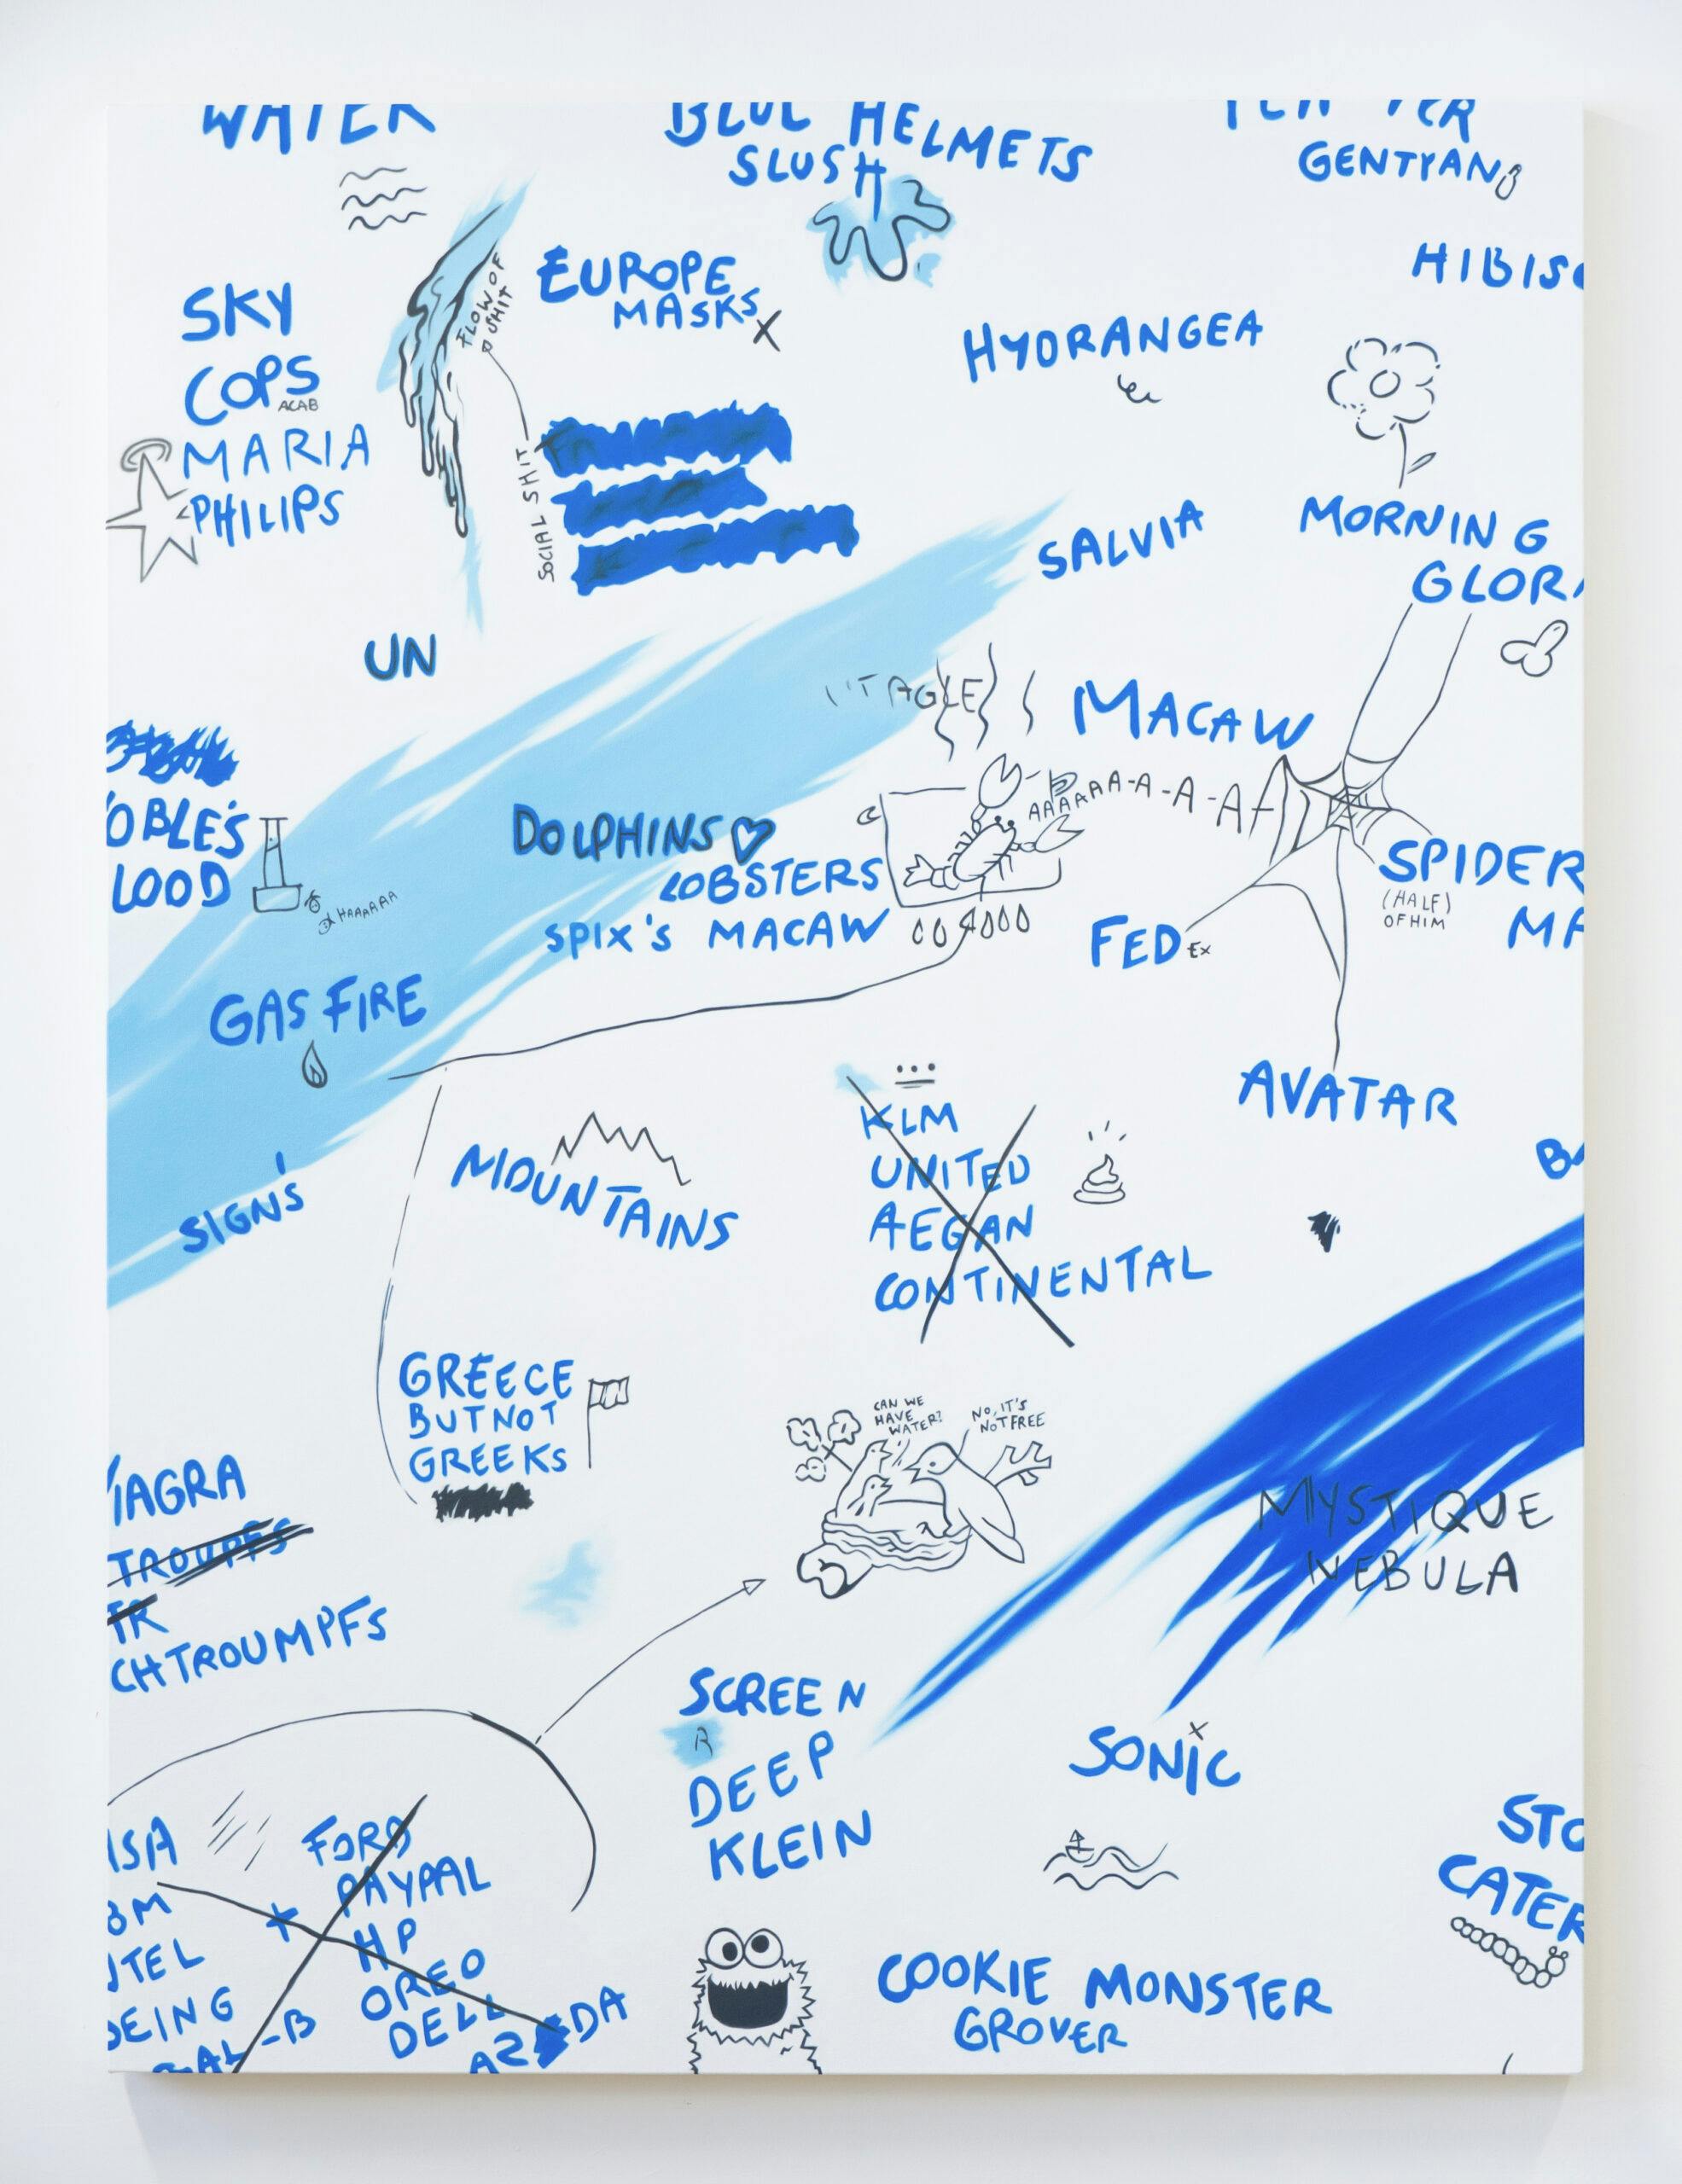 WATER
BLUE HELMETS
SLUSH
GENTYAN
HIBISC
FLOW OF
SHIT
EUROPE
MASKS
X
SKY
COPS
ACAB
MARIA
PHILIPS
HYDRANGEA
SOCIAL SHIT
SALVIA
MORNING
GLOR
UN
MACAW
AAAAAA-A-A-A-A
OBLE'S
LOOD
HAAAAAA
DOLPHINS
LOBSTERS
SPIX'S MACAW
SPIDER
(HALF)
OF HIM
MA
FED EX
GAS FIRE
AVATAR
KLM
UNITED
AEGAN
CONTINENTAL
BA
MOUNTAINS
SIGN'S
GREECE
BUT NOT
GREEKS
CAN WE
HAVE
WATER?
NO, IT'S
NOT FREE
VIAGRA
TROUPFS
TR
CHTROUMPFS
MYSTIQUE
NEBULA
SCREEN
R
DEEP
KLEIN
SONIC
X
STO
CATER
ISA
BM
NTEL
OEING
RAL-B
+
FORD
PAYPAL
HP
OREO
DELL
AZ DA
COOKIE MONSTER
GROVER